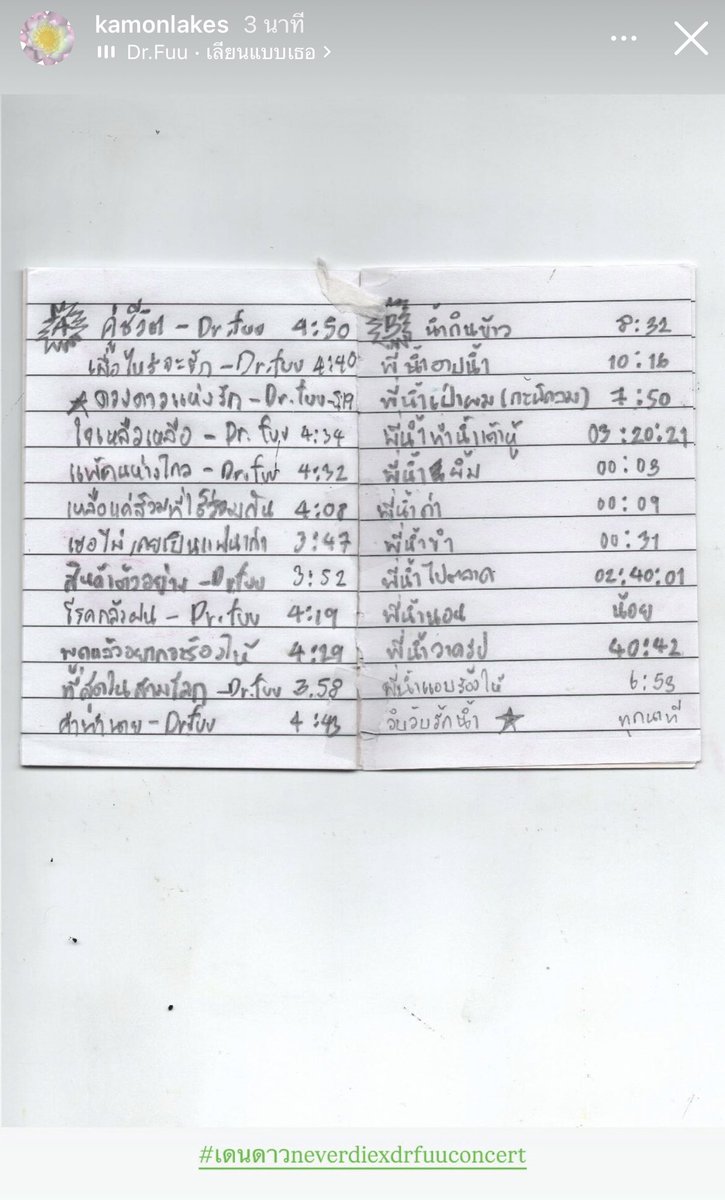 kamonlakes 3 นาที
Dr.Fuu · เลียนแบบเธอ >
A คู่ชีวิต - Dr.fuu 4:50
เมื่อไหร่จะรัก - Dr.fuu 4:40
ดวงดาวแห่งรัก - Dr.fuu
ใจเหลือเหลือ - Dr.fuu 4:34
แพ้คนห่างไกล - Dr.fuu 4:32
เหลือแค่ส้วมที่ใช้ร่วมกัน 4:08
เธอไม่เคยเป็นแฟนเก่า 3:47
สินค้าตัวอย่าง - Dr.fuu 3:52
โรคกลัวฝน - Dr.fuu 4:19
พูดแล้วอยากจะร้องไห้ 4:29
ที่สุดในสามโลก - Dr.fuu 3.58
คำทำนาย - Dr.fuu 4:43
B น้ำกินข้าว 8:32
พี่น้ำอาบน้ำ 10:16
พี่น้ำเป่าผม 7:50
พี่น้ำทำน้ำเต้าหู้ 03:20:21
พี่น้ำยิ้ม 00:03
พี่น้ำด่า 00:09
พี่น้ำขำ 00:31
พี่น้ำไปตลาด 02:40:01
พี่น้ำนอน น้อย
พี่น้ำวาดรูป 40:42
พี่น้ำแอบร้องไห้ 6:53
วิบวับรักน้ำ ทุกนาที
#เดนดาวneverdiexdrfuuconcert